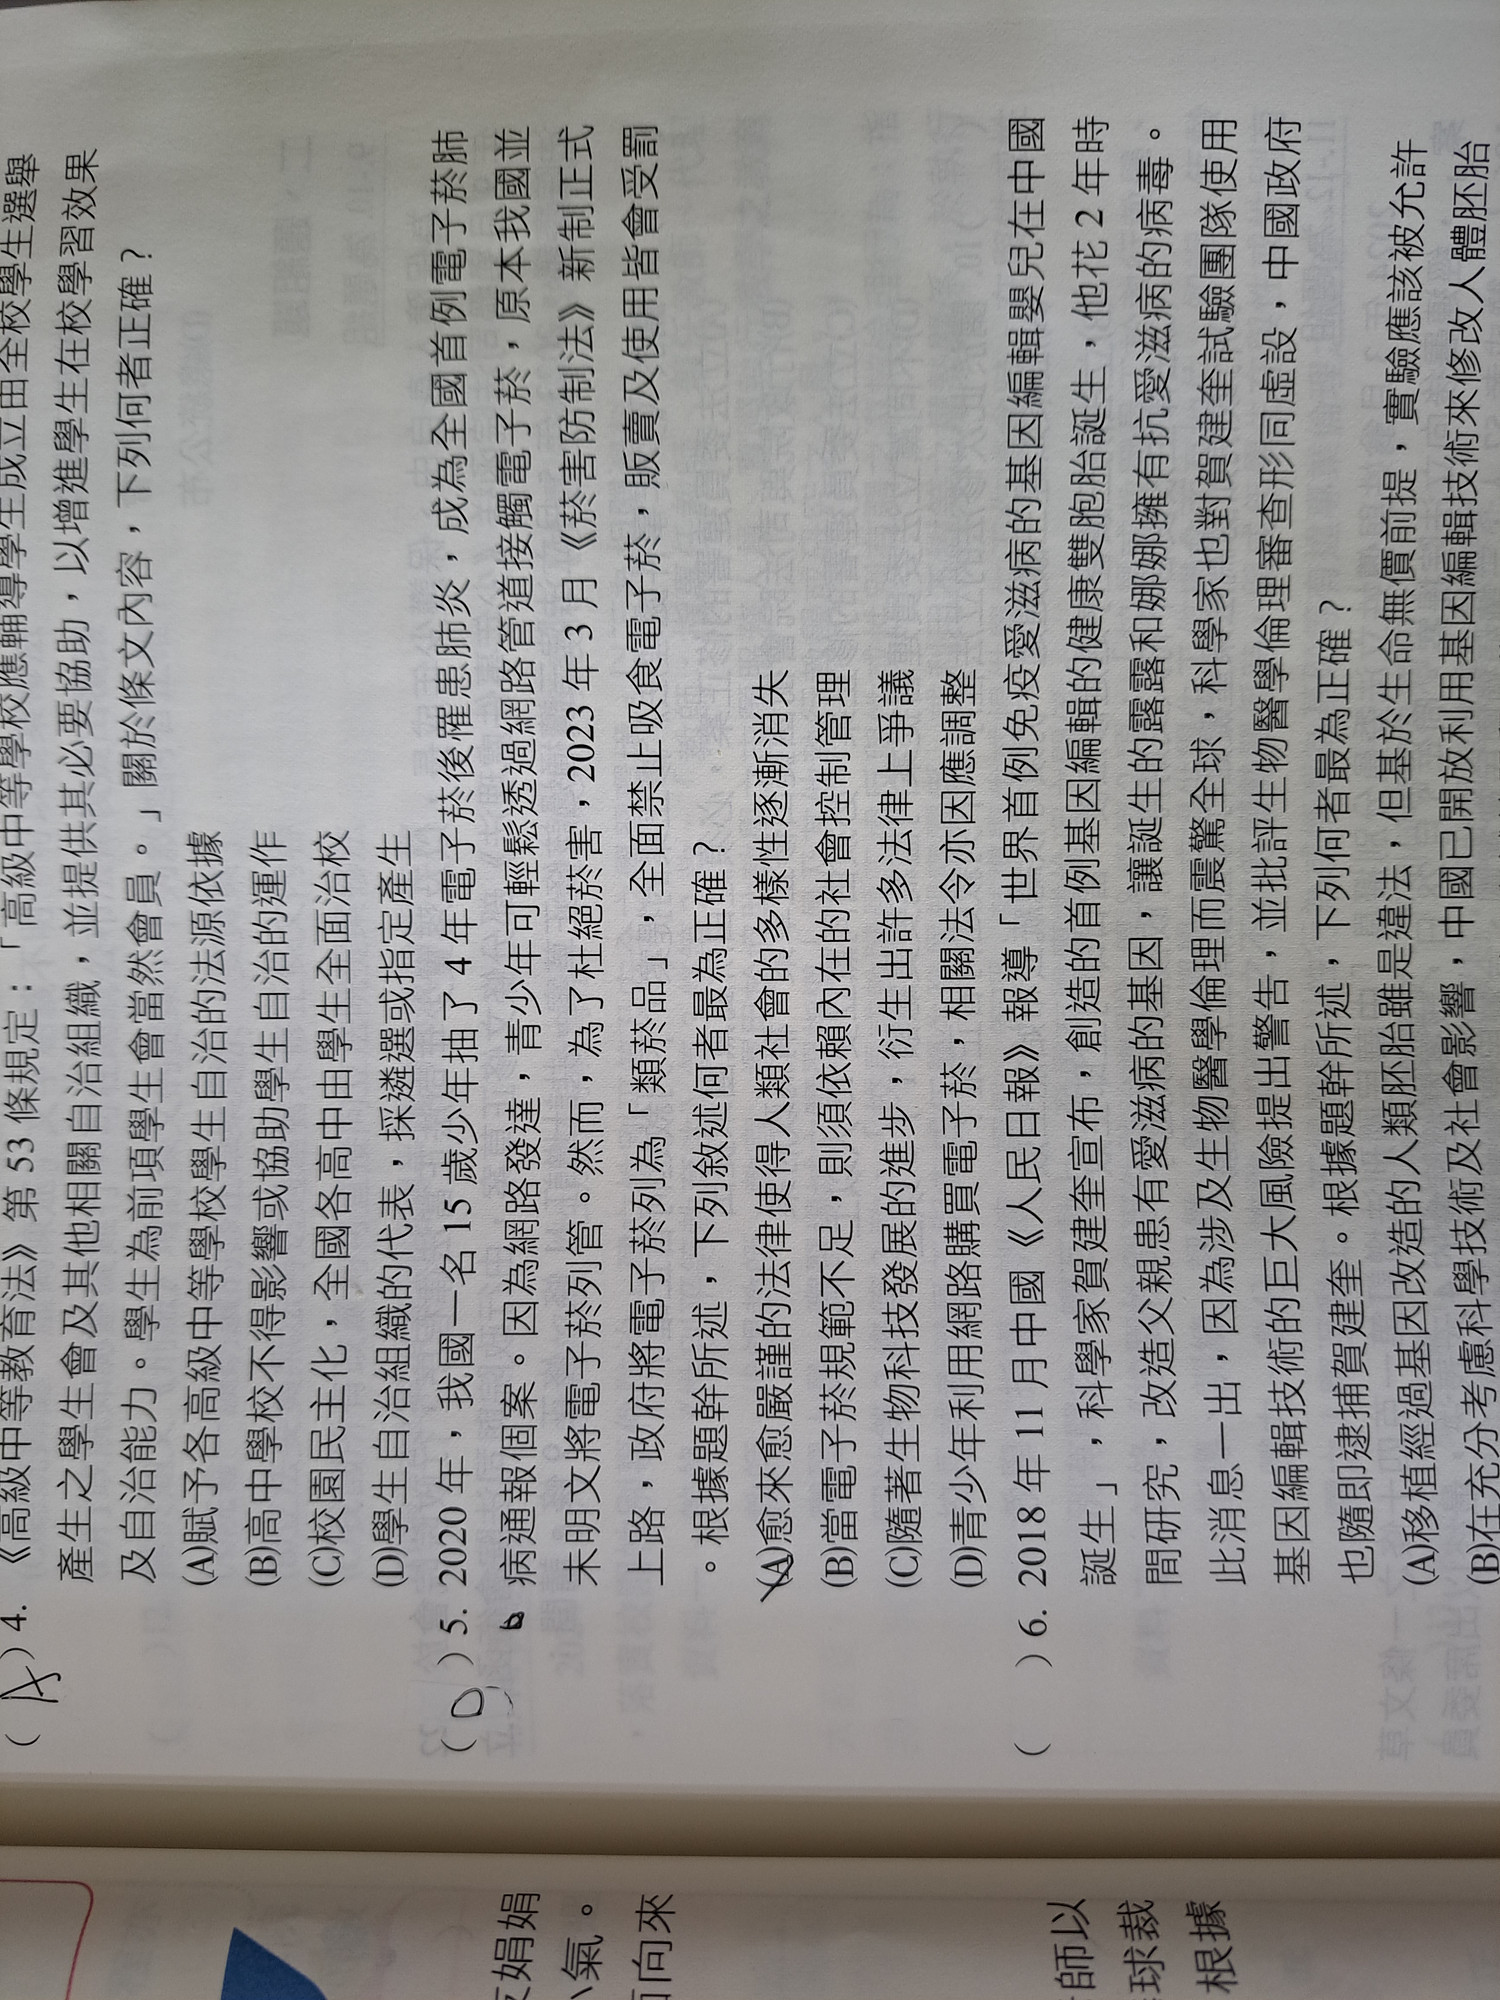 (A)4.《高級中等教育法》第 53 條規定：「高級中等學校應輔導學生成立由全校學生選舉
產生之學生會及其他相關自治組織，並提供其必要協助，以增進學生在校學習效果
及自治能力。學生為前項學生會當然會員。」關於條文內容，下列何者正確？
(A)賦予各高級中等學校學生自治的法源依據
(B)高中學校不得影響或協助學生自治的運作
(C)校園民主化，全國各高中由學生全面治校
(D)學生自治組織的代表，採遴選或指定產生
(D)5. 2020 年，我國一名 15 歲少年抽了 4 年電子菸後罹患肺炎，成為全國首例電子菸肺
病通報個案。因為網路發達，青少年可輕鬆透過網路管道接觸電子菸，原本我國並
未明文將電子菸列管。然而，為了杜絕菸害，2023 年 3 月《菸害防制法》新制正式
上路，政府將電子菸列為「類菸品」，全面禁止吸食電子菸，販賣及使用皆會受罰
。根據題幹所述，下列敘述何者最為正確？
(A)愈來愈嚴謹的法律使得人類社會的多樣性逐漸消失
(B)當電子菸規範不足，則須依賴內在的社會控制管理
(C)隨著生物科技發展的進步，衍生出許多法律上爭議
(D)青少年利用網路購買電子菸，相關法令亦因應調整
( )6. 2018 年 11 月中國《人民日報》報導「世界首例免疫愛滋病的基因編輯嬰兒在中國
誕生」，科學家賀建奎宣布，創造的首例基因編輯的健康雙胞胎誕生，他花 2 年時
間研究，改造父親患有愛滋病的基因，讓誕生的露露和娜娜擁有抗愛滋病的病毒。
此消息一出，因為涉及生物醫學倫理而震驚全球，科學家也對賀建奎試驗團隊使用
基因編輯技術的巨大風險提出警告，並批評生物醫學倫理審查形同虛設，中國政府
也隨即逮捕賀建奎。根據題幹所述，下列何者最為正確？
(A)移植經過基因改造的人類胚胎雖是違法，但基於生命無價前提，實驗應該被允許
(B)在充分考慮科學技術及社會影響，中國已開放利用基因編輯技術來修改人體胚胎
友娟娟
小氣。
面向來
師以
球裁
根據